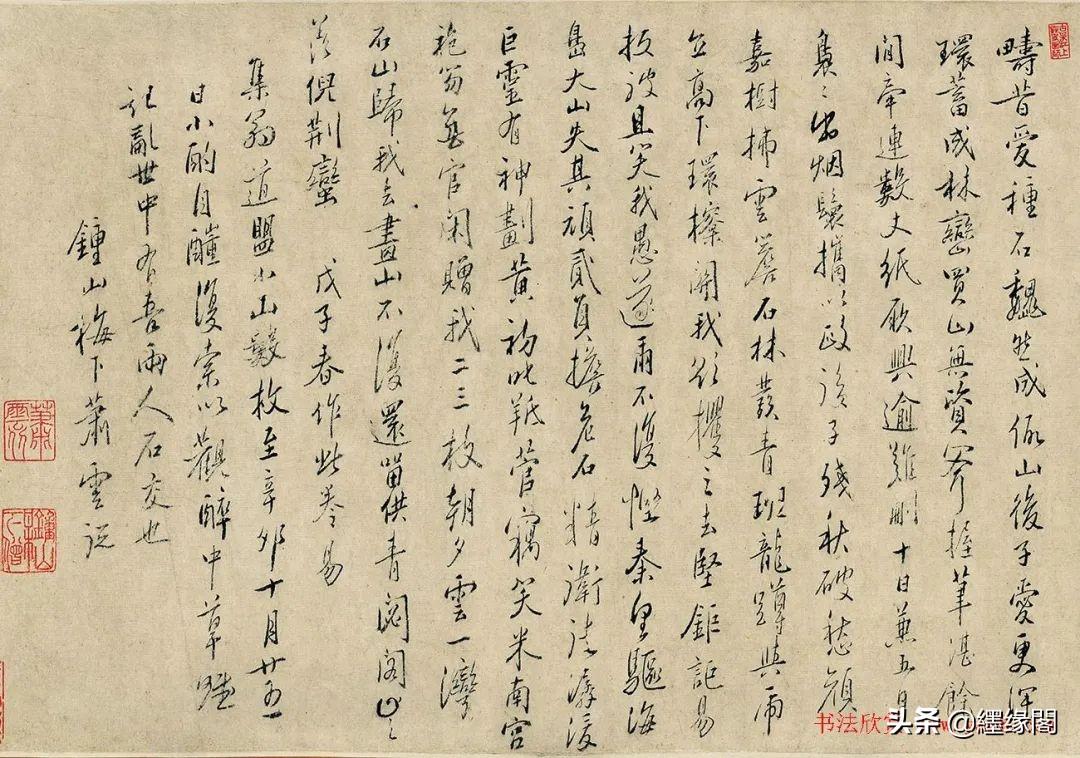 疇昔爱種石巍然成仮山後子愛更深
環蓄成林巒買山無資斧握筆湛餘
閒牽連數丈紙厥興逾難刪十日兼五日
裊〻出烟鬟携以政後子殘秋破愁顔
嘉樹拂雲石林叢青班龍蹲與虎
立高下環闌我欲攫之去堅鉅詎易
扳詖且笑我愚遂爾不復慳秦皇驅海
島大山失其頑貳負擔危石精衛誌潺湲
巨靈有神劃黄初叱羝菅竊笑米南宮
袍笏無官閑贈我二三枚朝夕雲一灣
石山歸我去畫山不復還留供青閟閣山〻
若倪荆蠻 戊子春作此卷易
集翁道盟小山數枚至辛卯十月廿五
日小酌自醺復索以觀醉中草
記亂世中有吾兩人石交也
鍾山梅下蕭雲從
蕭雲從
书法欣
头条 @繧缘閣